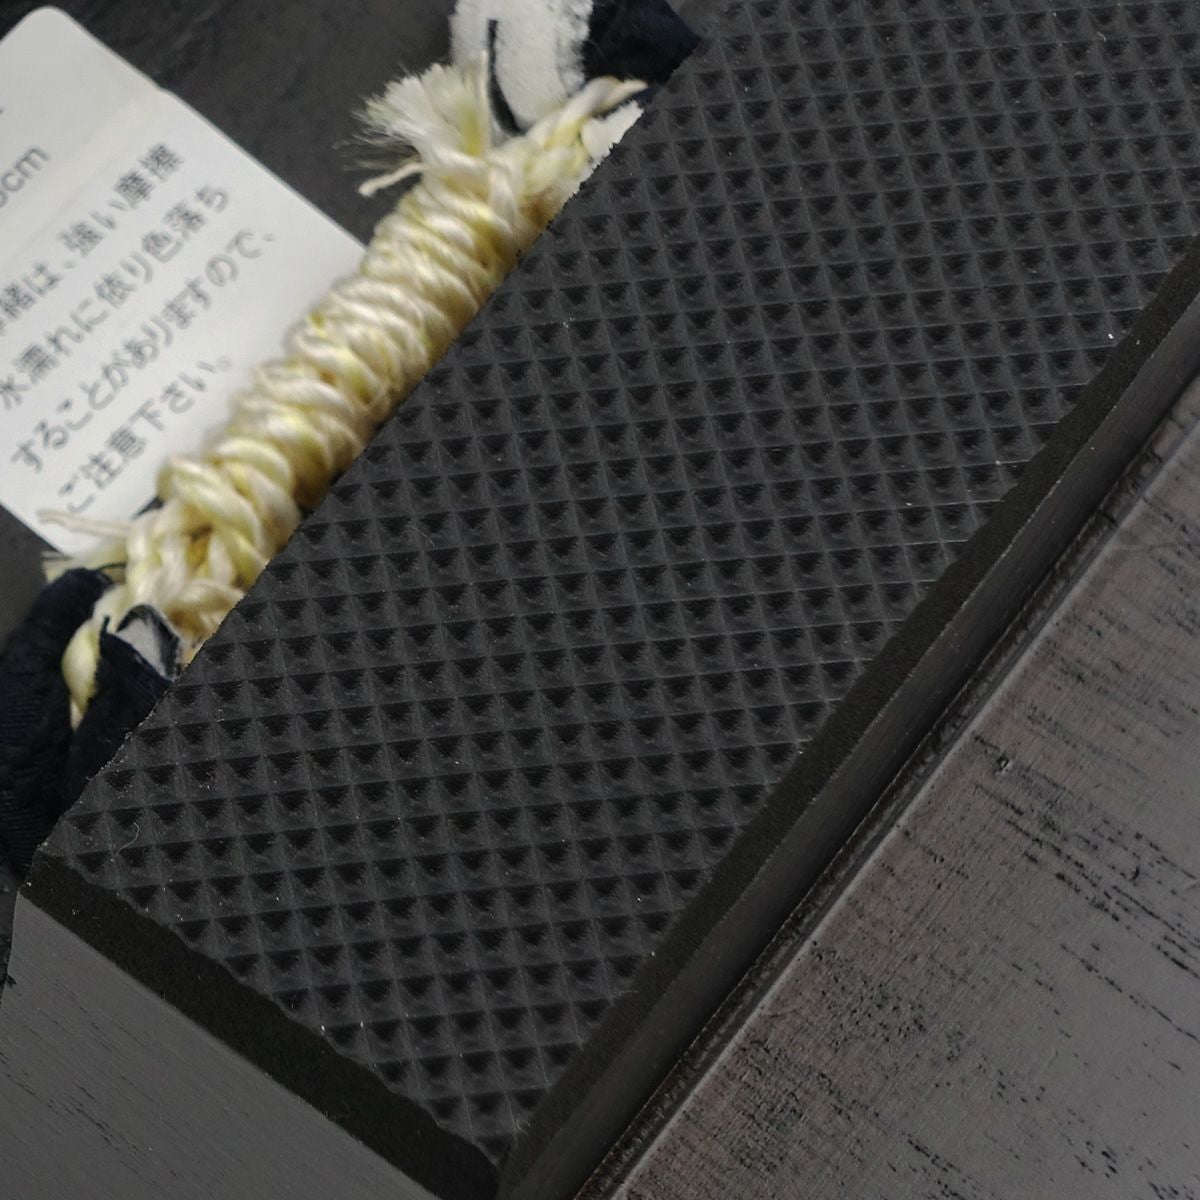 cm
緒は、強い摩擦
水濡れに依り色落ち
することがありますので、
ご注意下さい。